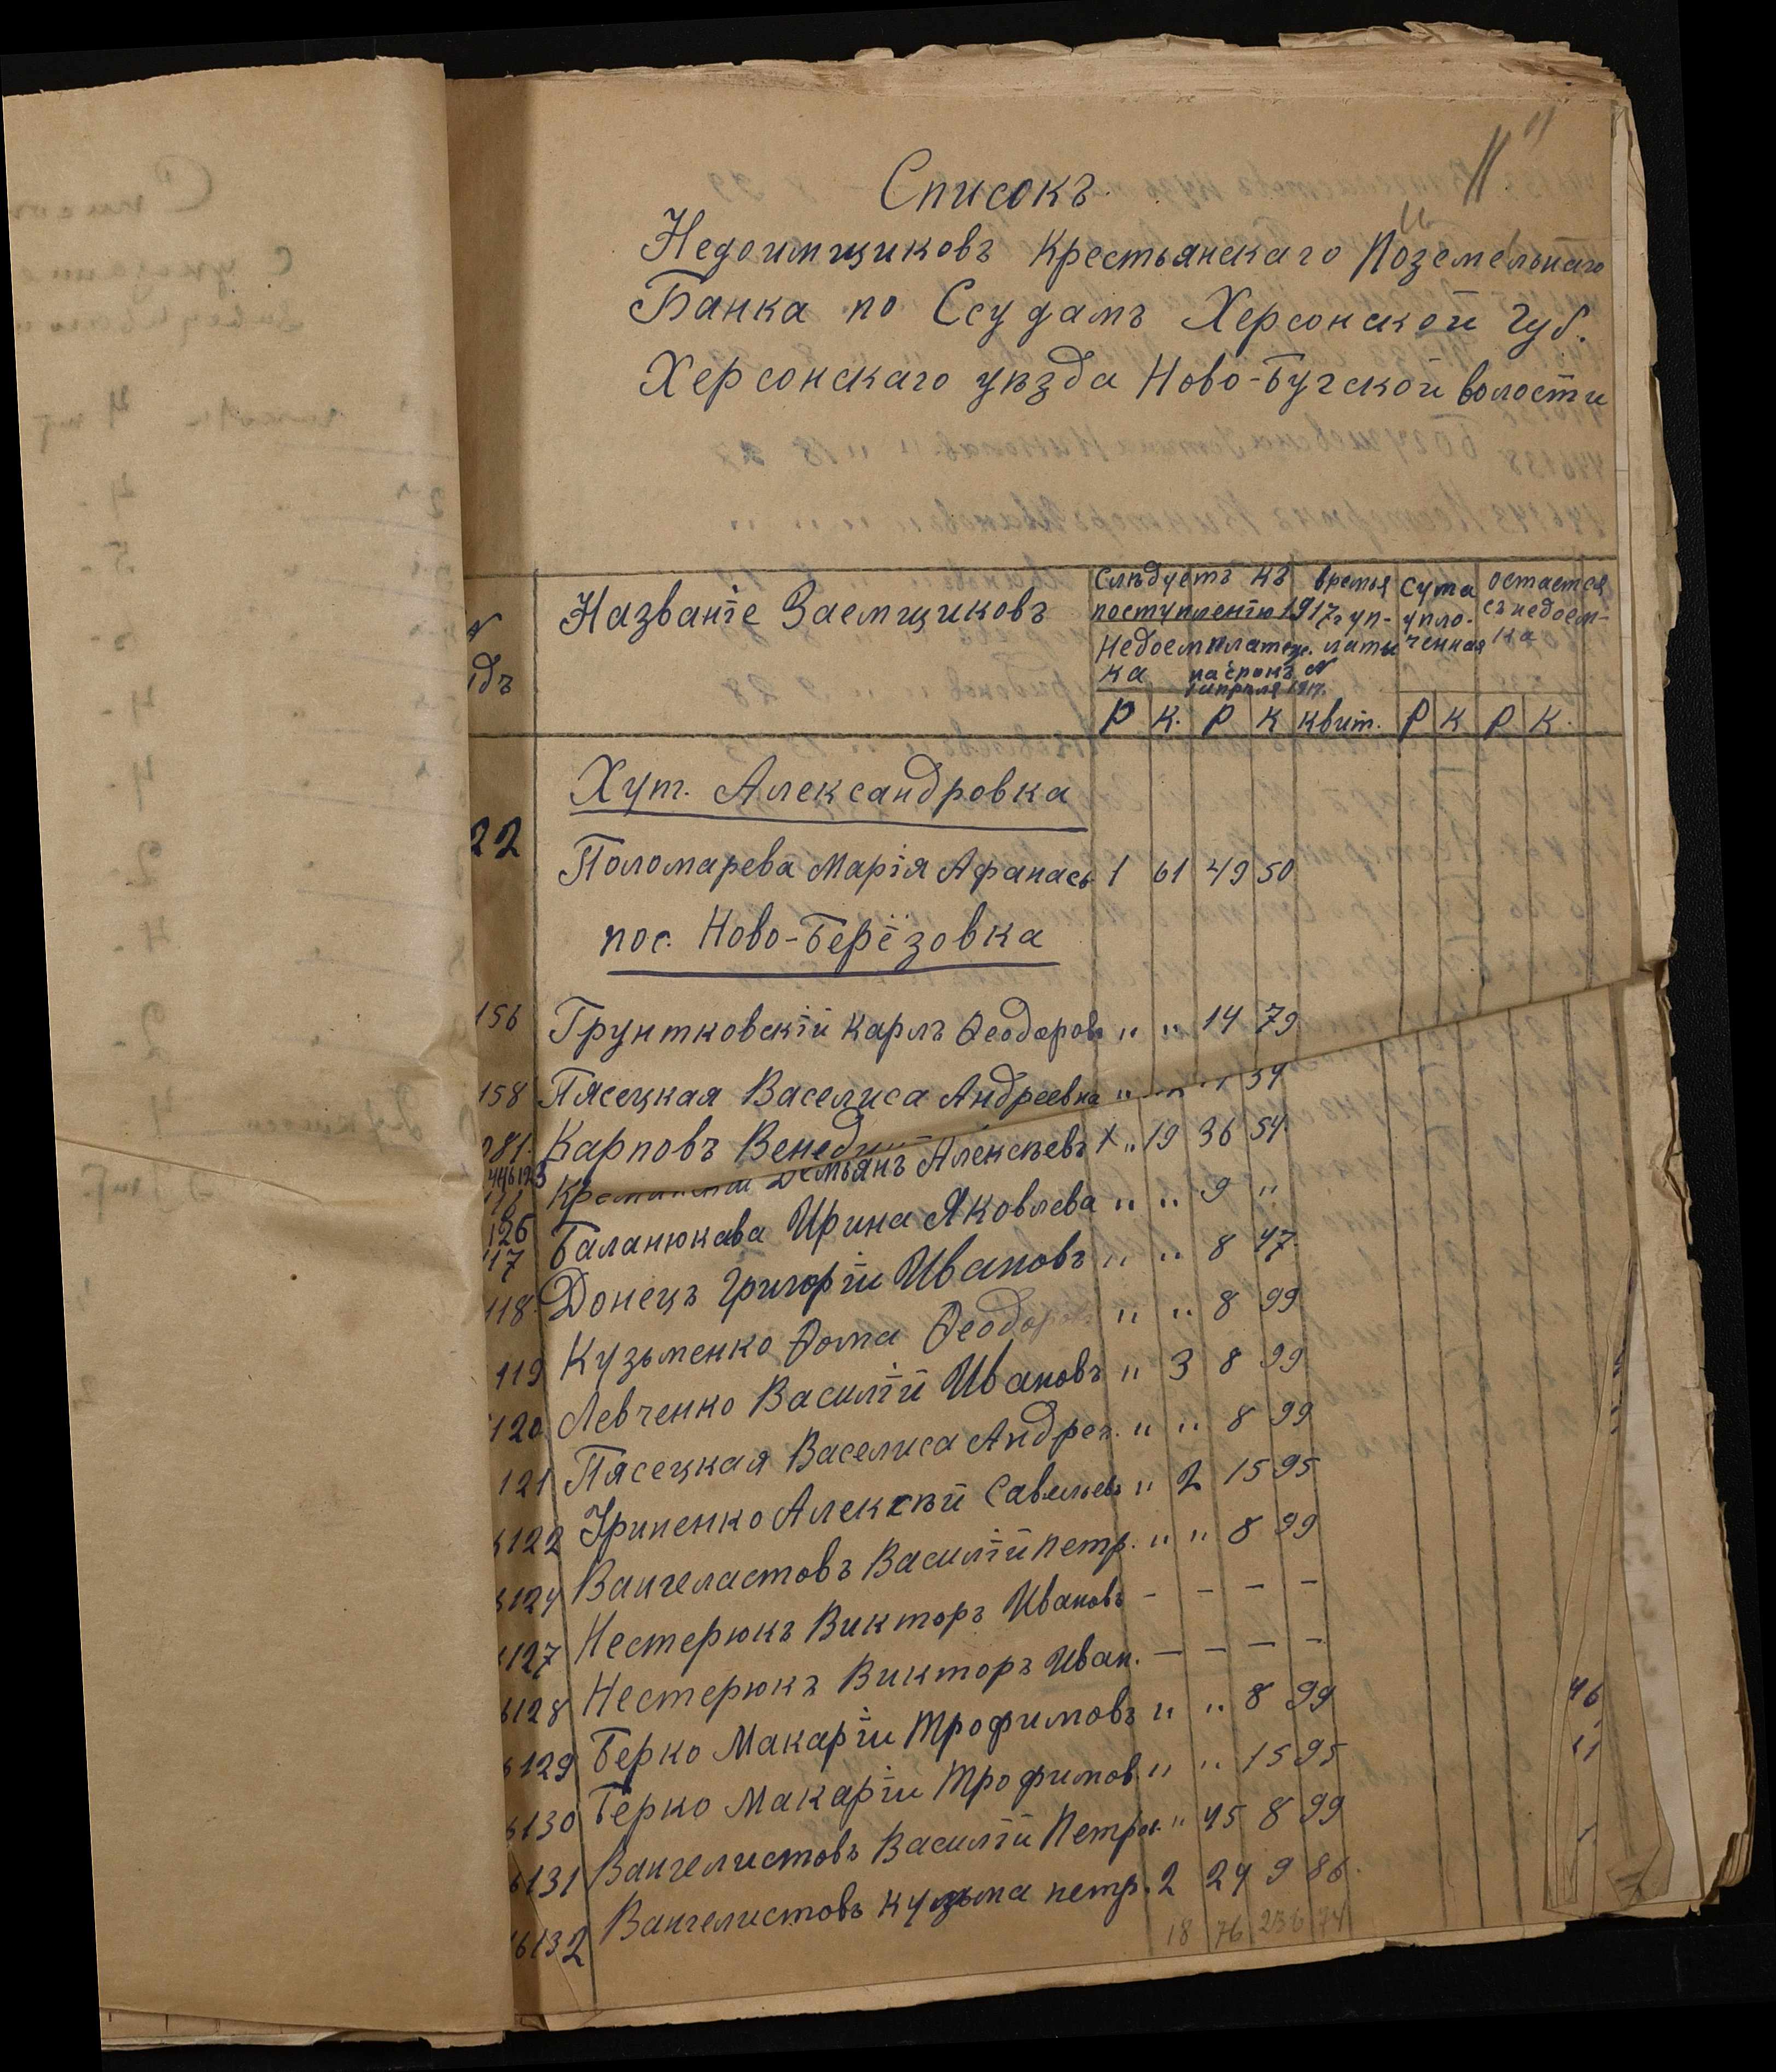 11
Списокъ
Недоимщиковъ Крестьянскаго Поземельнаго
Банка по Ссудамъ Херсонской губ.
Херсонскаго уѣзда Ново-Бугской волости
Названіе Заемщиковъ
Слѣдуетъ къ поступленію 1917г
Недоемка
платеж. на срокъ 1 апрѣля 1917.
время уплаты № квит.
Сума уплоченная
остается съ недоемка
Р К. Р К квит. Р К Р К.
Хут. Александровка
22 Поломарева Марія Афанась 1 61 49 50
пос. Ново-Берёзовка
156 Грунтковскій Карлъ Ѳеодоровъ " " 14 79
158 Пясецкая Васелиса Андреевна " 54
081. Карповъ
446123 Демьянъ Алексѣевъ 1 " 19 36 54
126
117 Баланюкава Ирина Яковлева " " 9 "
118. Донецъ Григорій Ивановъ " " 8 47.
119 Кузьменко Ѳома Ѳеодоровъ " " 8 99
120 Левченко Василій Ивановъ " 3 8 99
121 Пясецкая Васелиса Андреев. " " 8 99
122 Алексѣй Савельевъ " 2 15 95
124 Вангеластовъ Василій петр. " " 8 99
127 Нестерюкъ Викторъ Ивановъ - - - -
6128 Нестерюкъ Викторъ Иван. — — — —
6129 Берко Макарій Трофимовъ " " 8 99
6130 Берко Макарій Трофимов " " 15 95
6131 Вангелистовъ Василій Петров. " 45 8 99
6132 Вангелистовъ Кузьма петр. 2 24 9 86.
18 76 236 74
46